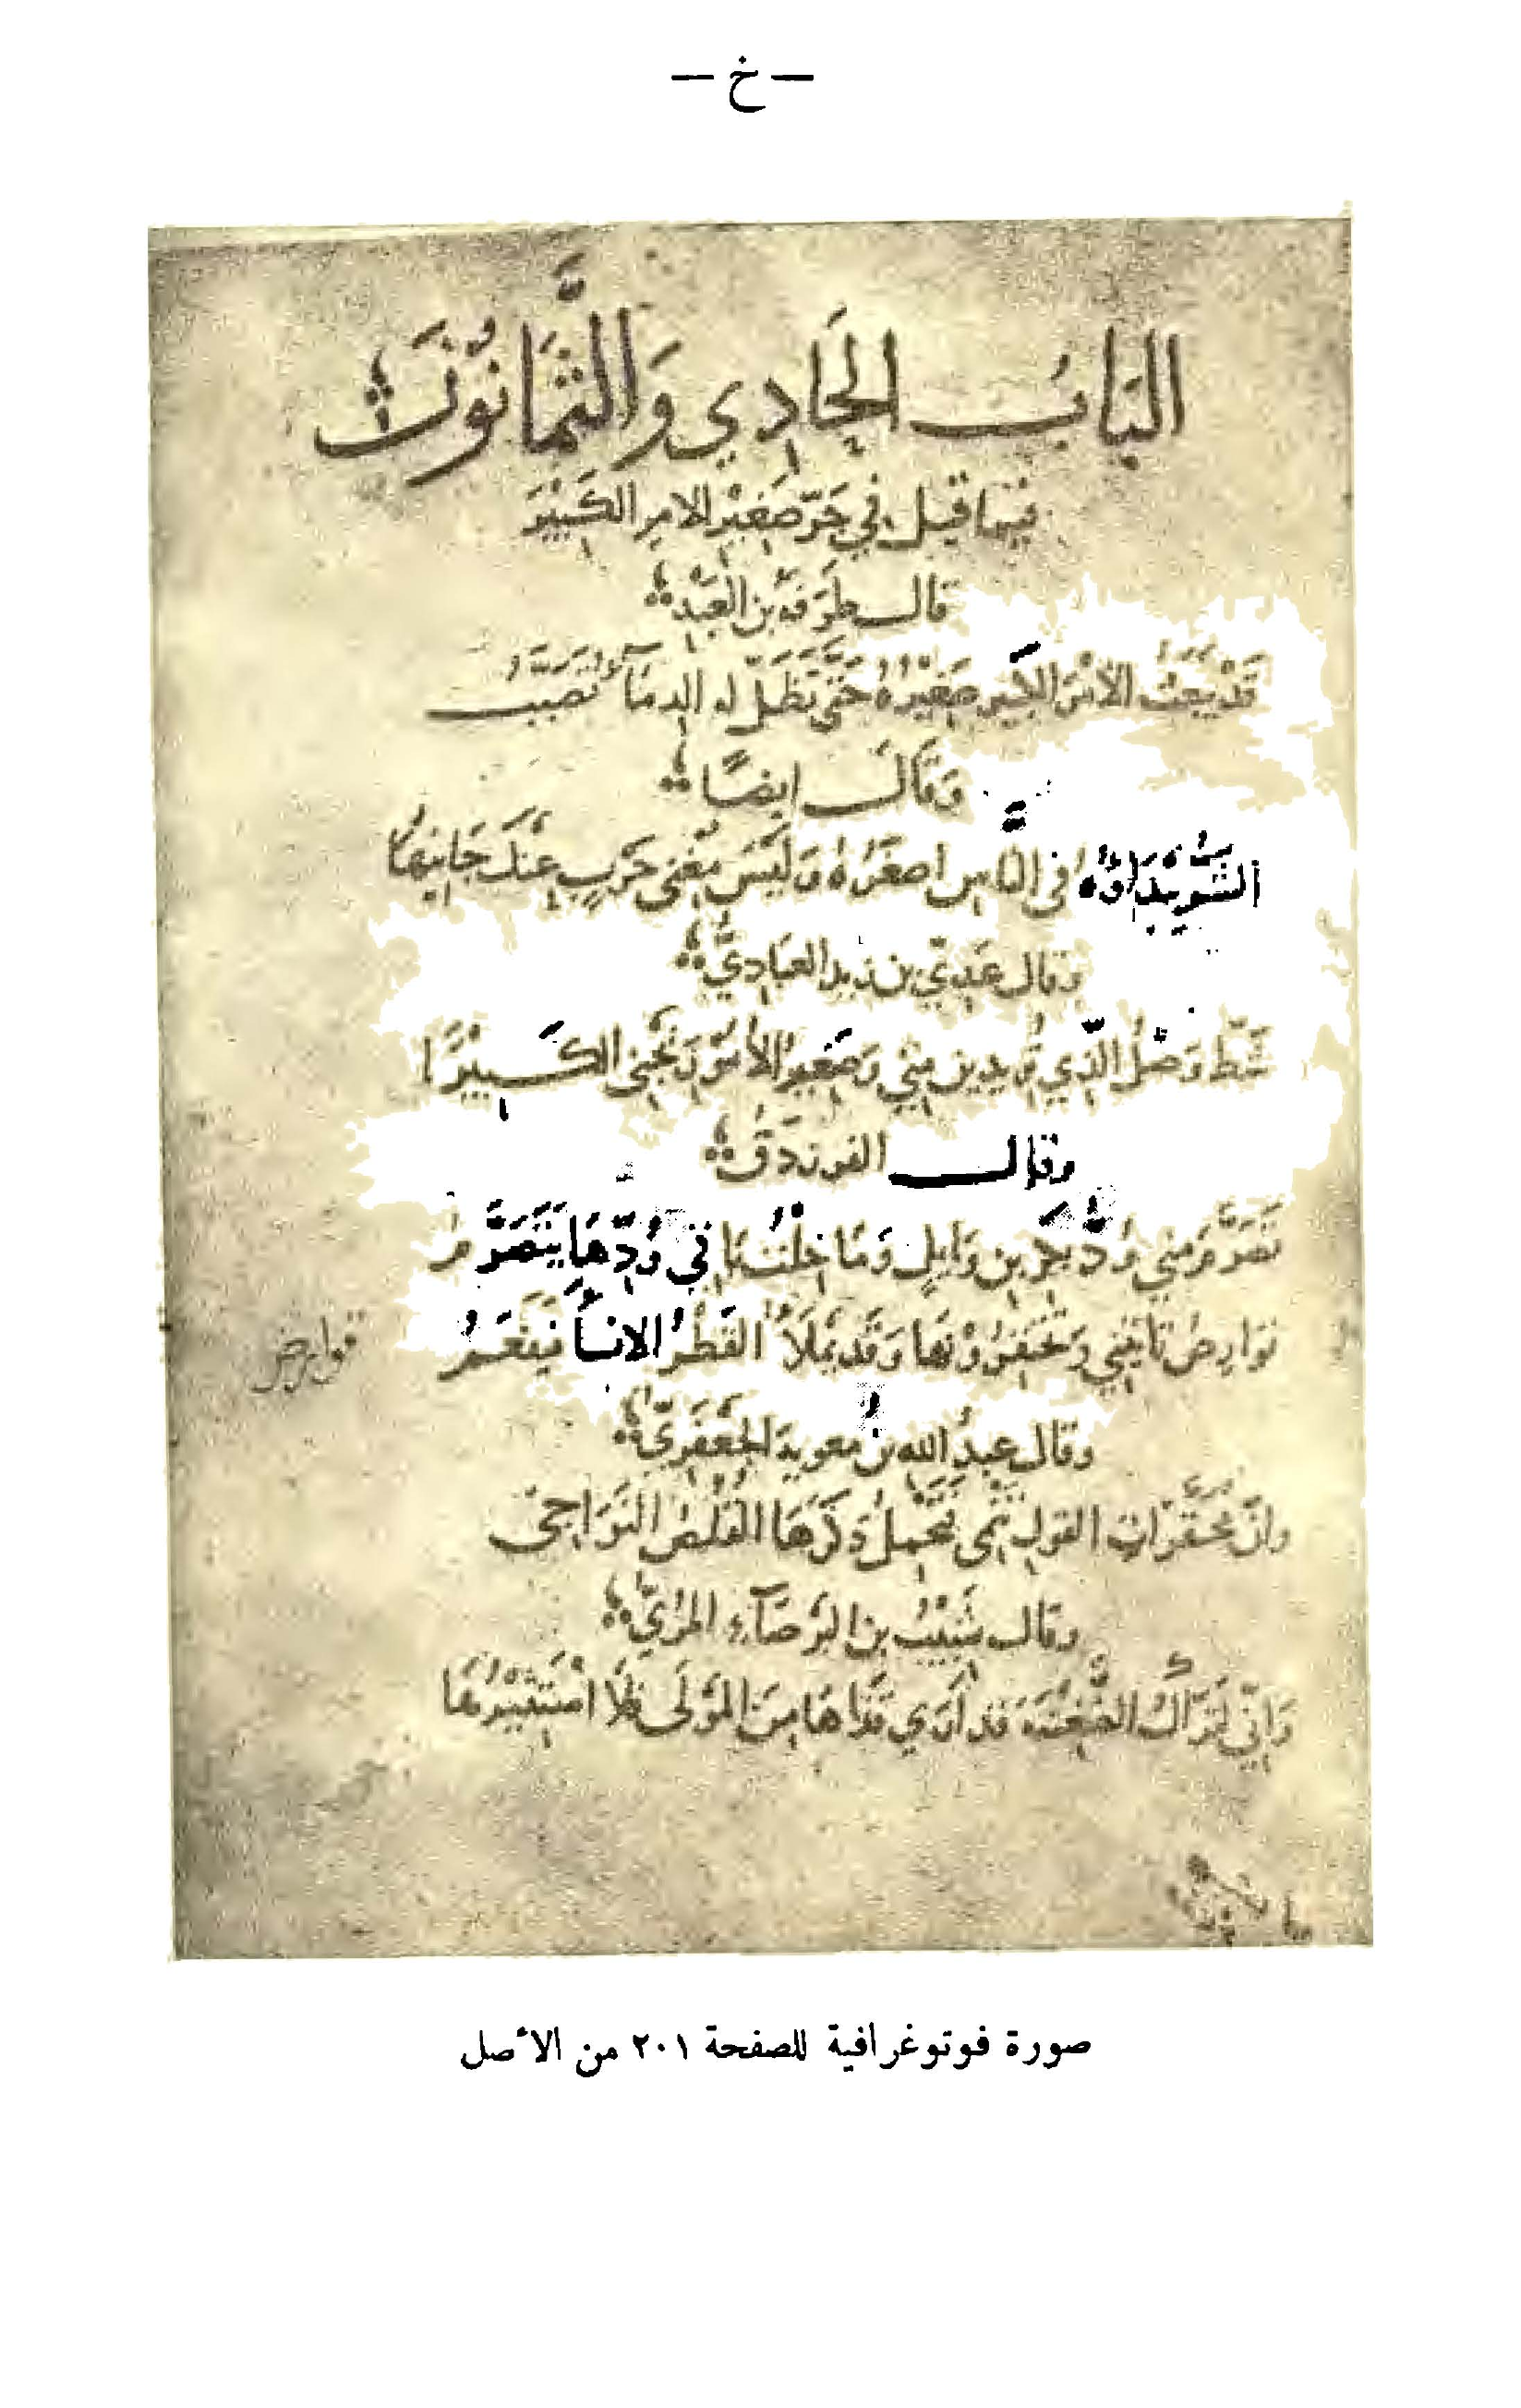 — خ —
البَابُ الحَادِي وَالثَّمَانُونَ
فيما قيل في جَرّ صَغِيْر الامرِ الكَبِيْرَ
قال طَرَفَه بن العَبْدِ
قَدْ يَبعَثُ الأَمْرَ الكَبِير صَغِيْرُهُ حَتَّى تَظَلّ له الدمآءُ تَصَبَّبُ
وَقَالَ ايضًا
الشَّرُّ يَبْدَاؤُهُ في النَّاسِ اصغَرُهُ وَلَيْسَ مُغْنِى حَرْبٍ عَنكَ جَانِيهَا
وقال عَدِيّ بن زيد العبَادِيُّ
شَطَّ وَصْلُ الَّذِي تُرِيدِينَ مِنِّي وَصَغِيرُ الأُمُوْرِ يَجْنِى الكَبِيْرَا
وقال الفرزدَقُ
تَصَرَّمَ مِنِي وُدُّ بَكرِ بنِ وَايِلٍ وَمَا خِلْتُ بَاقِي وُدِّهَا يَتَصَرَّمُ
قوَارِصُ تَاتِيْنِي وَتَحْتَقِرُوْنَهَا وَقَدْ يَمْلَأُ القَطْرُ الانَآءَ فَيَفْعَمُ
قوارض
وقال عبدُ الله بن معوية الجَعْفَرِيُّ
وانّ مُحَقَّرَاتِ القولِ تَنْمِي تَحْمِلُ ذِكْرَهَا القُلُصُ النَوَاجِى
وقال شَبِيْبُ بن البَرْصَآءِ المُرِّيُّ
وَاِنِّي لَتَرَّاكُ الضَّغِيْنَةَ قد اَرَي قَذَاهَا مِنَ المَوْلَى فَلَا اَسْتَثِيْرُهَا
صورة فوتوغرافية للصفحة ٢٠١ من الأصل